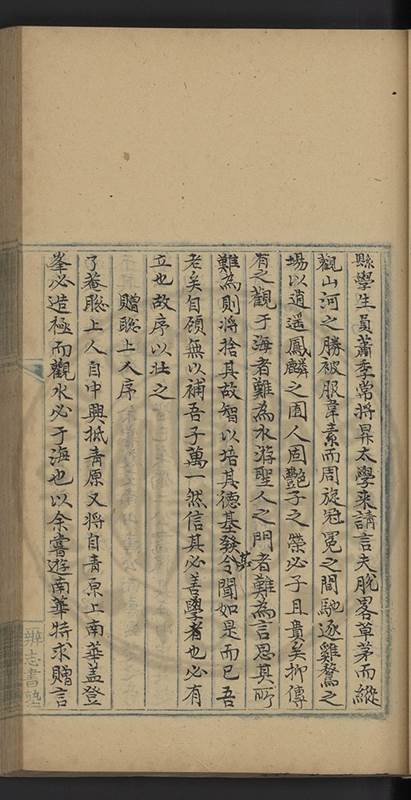 縣學生員蕭季常將昇太學來請言夫脫畧草茅而縱
觀山河之勝被服韋素而周旋冠冕之間馳逐雞鶩之
場以逍遥鳳麟之囿人固艷子之榮必子且貴矣抑傳
有之觀于海者難為水游聖人之門者難為言思其所
難為則將捨其故智以培其德基發其令聞如是而已吾
老矣自頋無以補吾子萬一然信其必善學者也必有
立也故序以壮之
贈聡上人序
了菴聡上人自中興抵青原又將自青原上南華盖登
峯必造極而觀水必于海也以余嘗遊南華特求贈言
辨志書塾